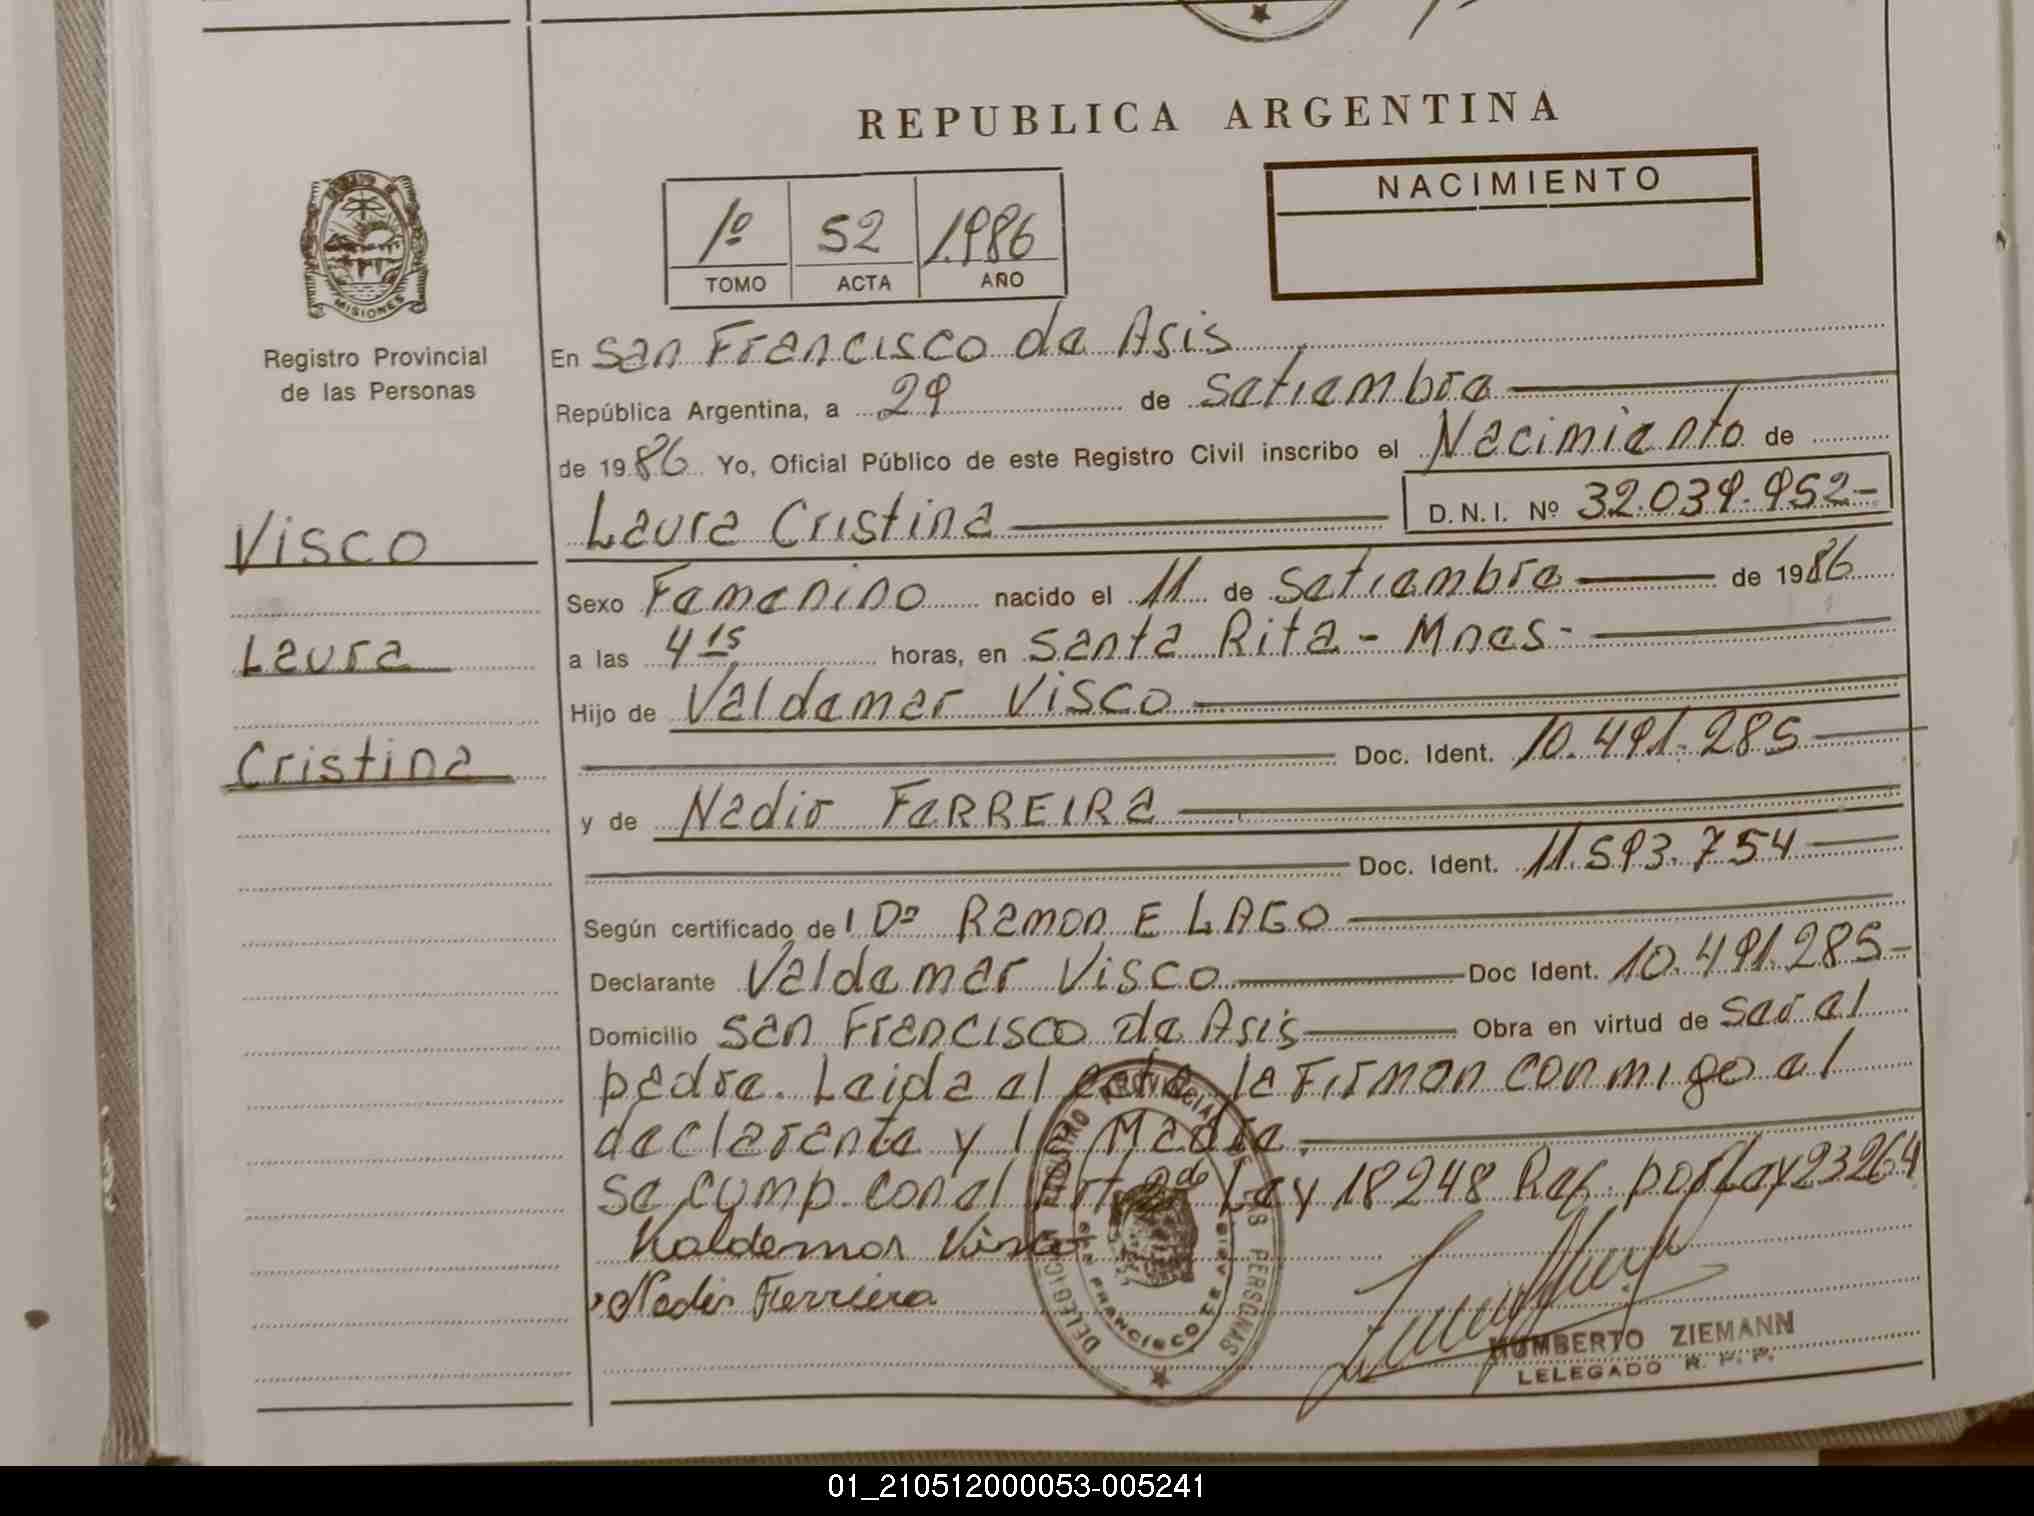 REPUBLICA ARGENTINA
NACIMIENTO
1º 52 1986
TOMO ACTA AÑO
MISIONES
Registro Provincial
de las Personas
Visco
Laura
Cristina
En San Francisco de Asis
República Argentina, a 29 de Setiembre
de 1986 Yo, Oficial Público de este Registro Civil inscribo el Nacimiento de
Laura Cristina D.N.I. Nº 32.039.952-
Sexo Femenino nacido el 11 de Setiembre de 1986
a las 4 15 horas, en Santa Rita - Mnes-
Hijo de Valdemar Visco
Doc. Ident. 10.491.285
y de Nadir FeRREIRa
Doc. Ident. 11.593.754
Según certificado de Ramon E LAGO
Declarante Valdemar Visco Doc Ident. 10.491.285-
Domicilio San Francisco de Asis Obra en virtud de ser el
padre. Leida el acta la Firman conmigo el
declarante y la Madre.
Se cump. con el Ley 18248 Ref. por Ley 23264
Valdemar Visco
Nadir Ferreira
DELEGACION REGISTRO PROVINCIAL DE LAS PERSONAS
SAN FRANCISCO DE ASIS
HUMBERTO ZIEMANN
LELEGADO R. P. P.
01_210512000053-005241